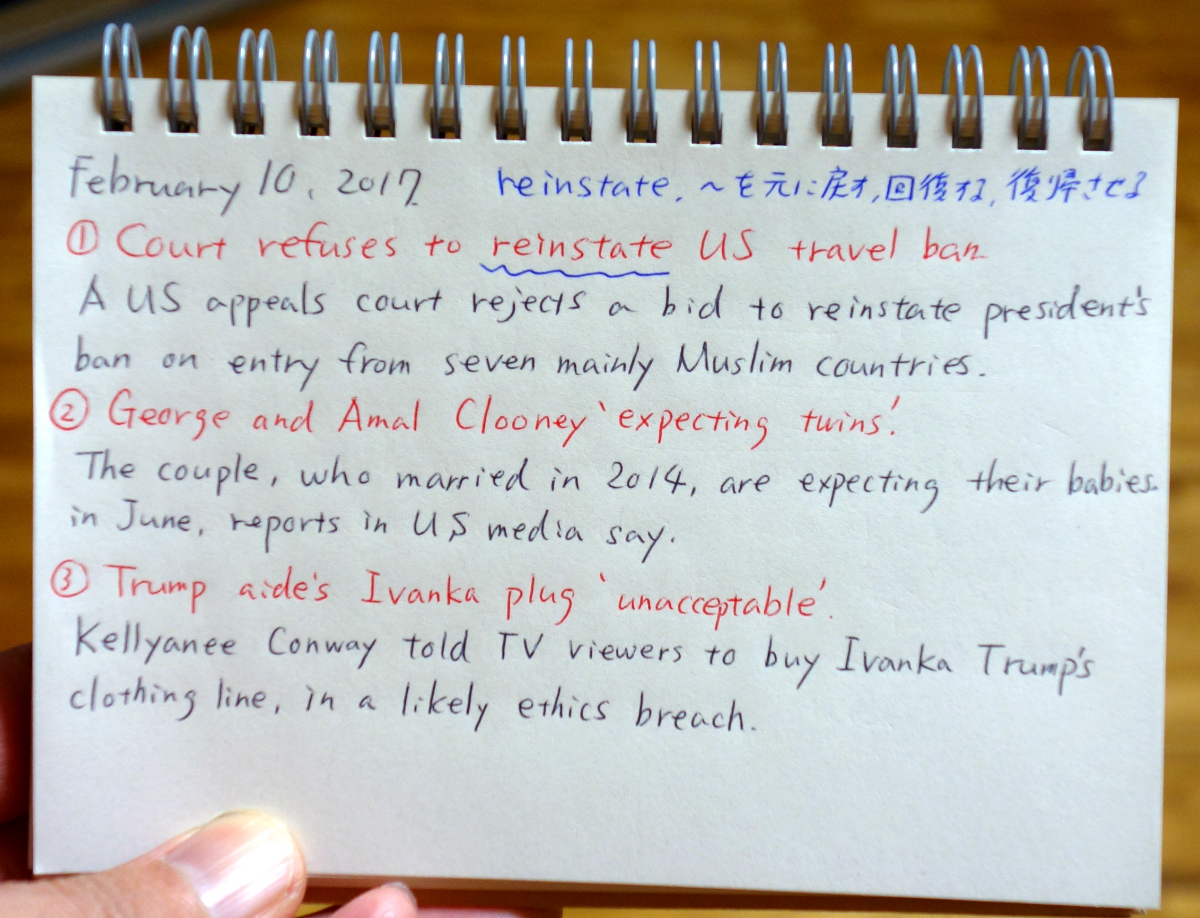 February 10, 2017. reinstate. ~を元に戻す,回復する,復帰させる
① Court refuses to reinstate US travel ban
A US appeals court rejects a bid to reinstate president's
ban on entry from seven mainly Muslim countries.
② George and Amal Clooney 'expecting twins'.
The couple, who married in 2014, are expecting their babies.
in June, reports in US media say.
③ Trump aide's Ivanka plug 'unacceptable'.
Kellyanee Conway told TV viewers to buy Ivanka Trump's
clothing line, in a likely ethics breach.